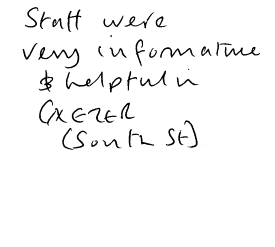 Staff were
very informative
& helpful in
EXETER
(South St)